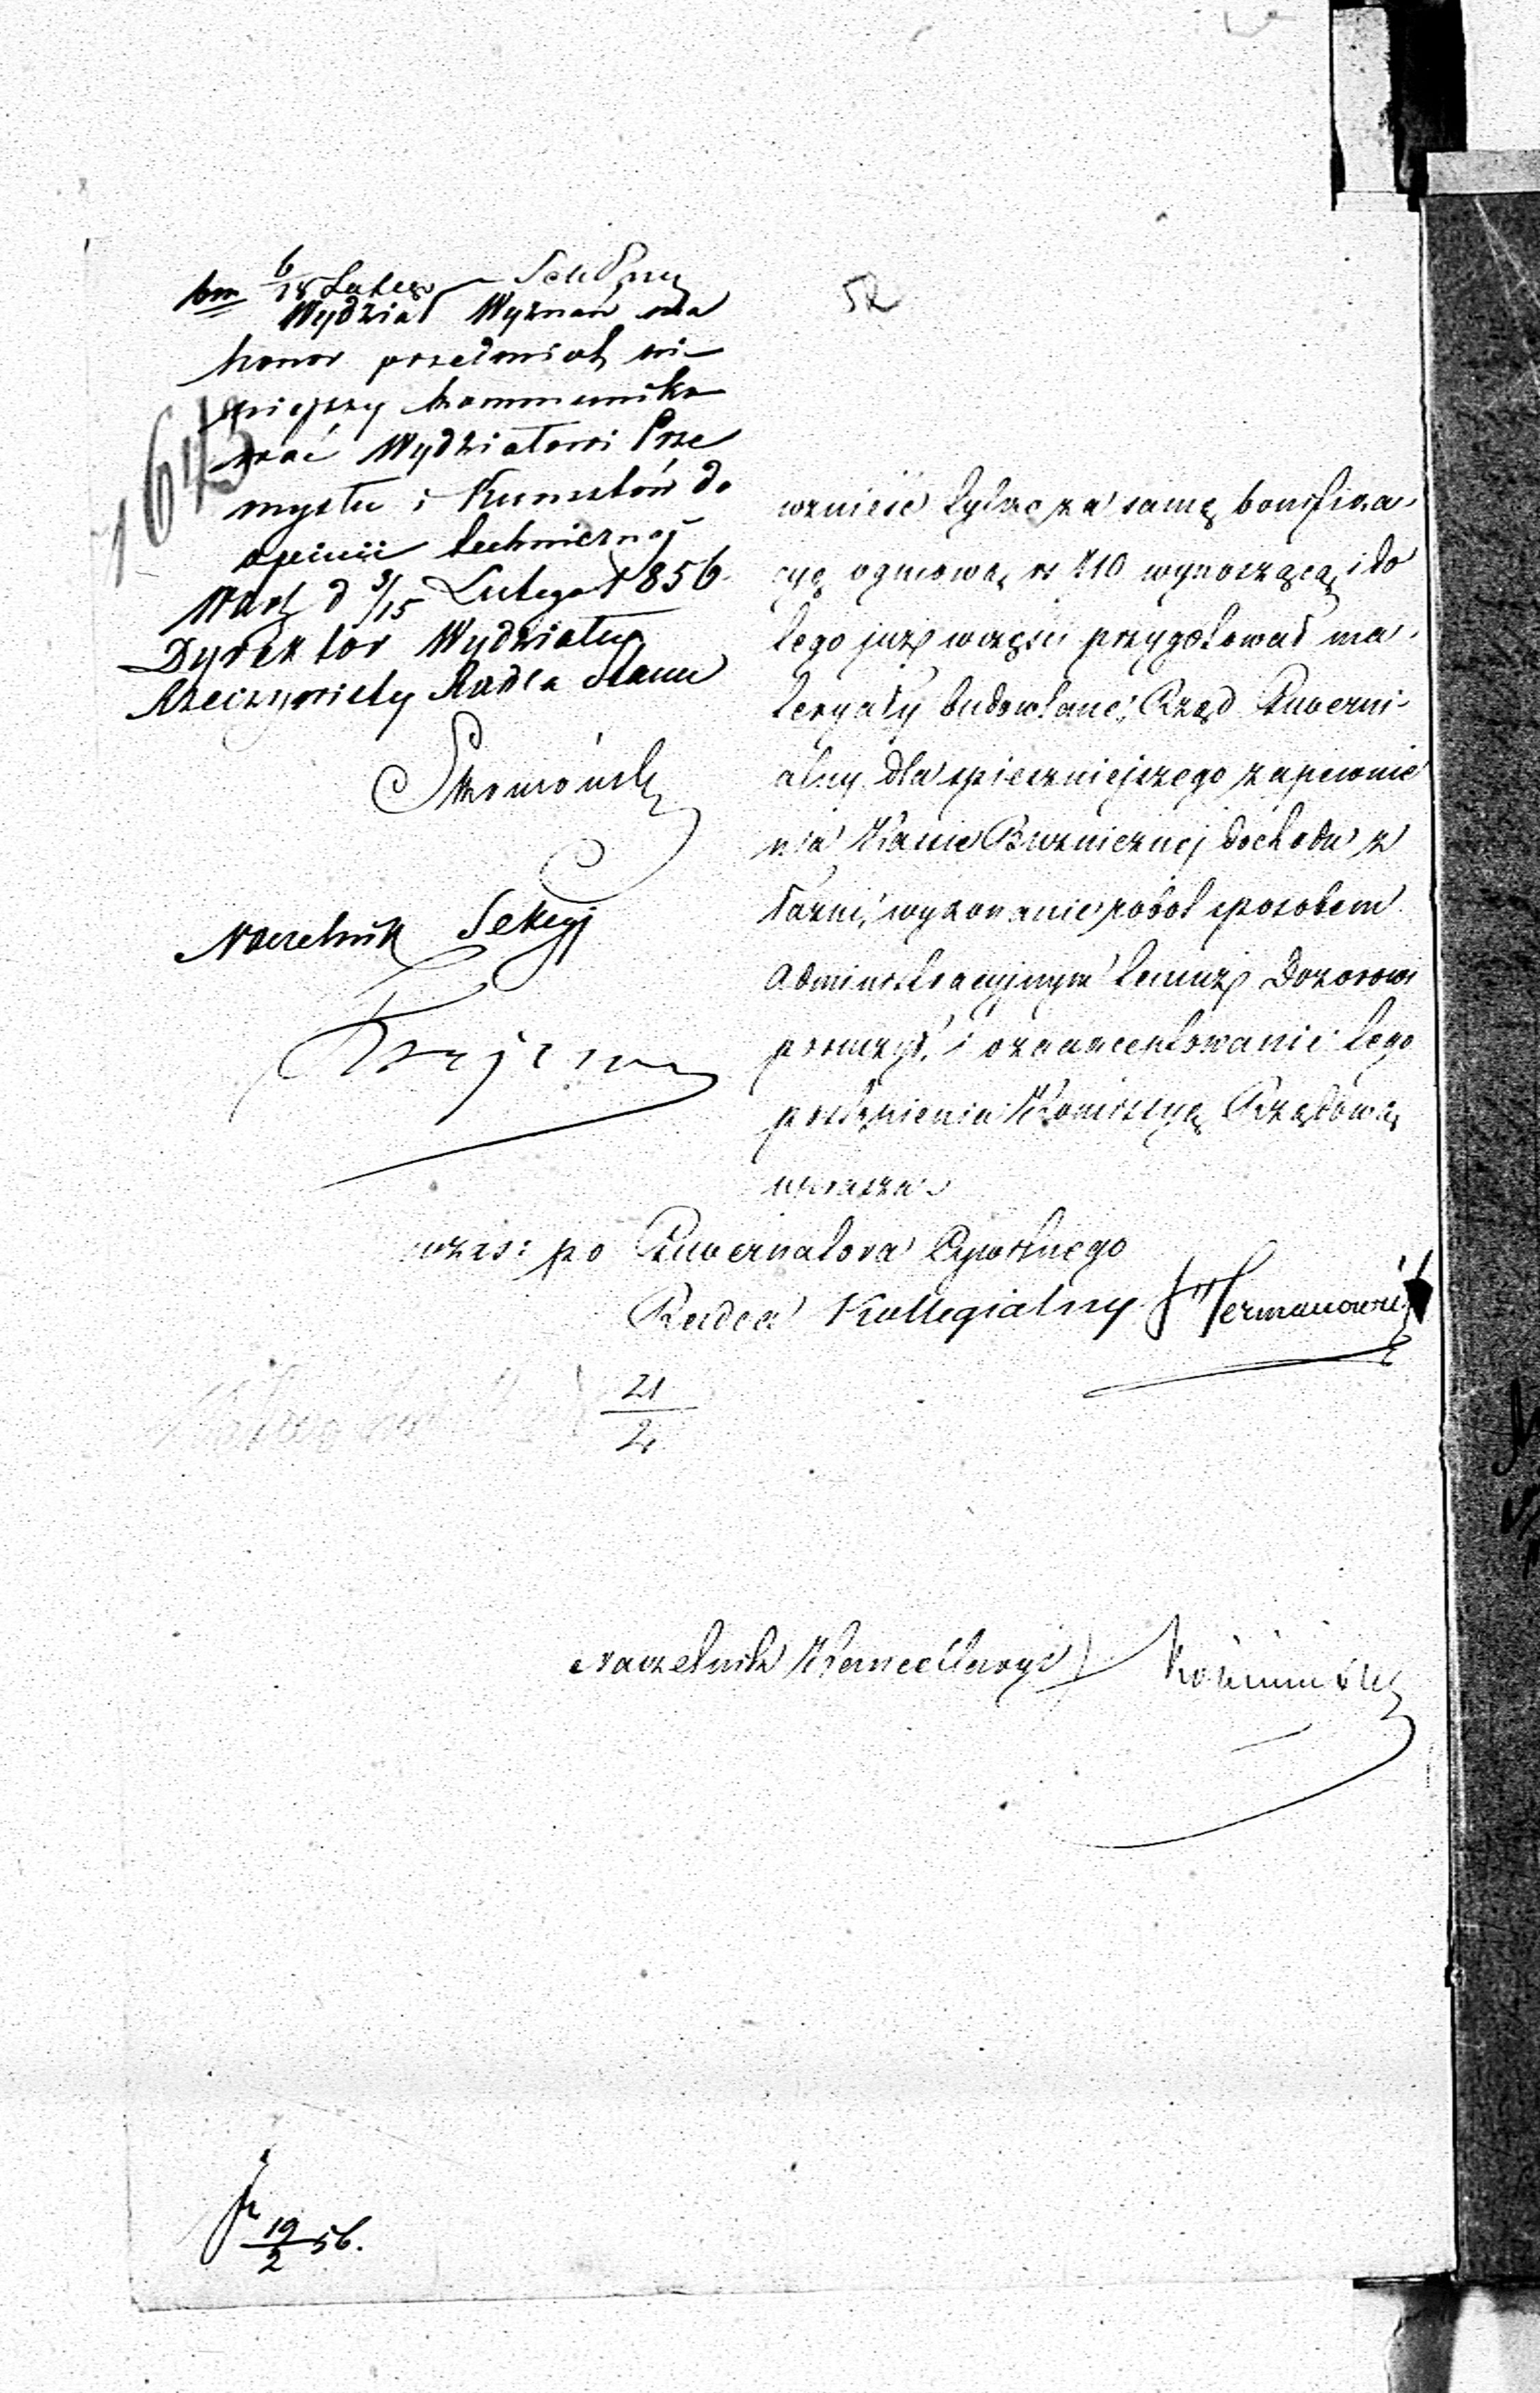 6/18 Lutego
Wydział Wyznań ma
honor przedmiot ni-
niejszy kommuniko
wać Wydziałowi Prze
mysłu i Kunsztów do
opinii technicznej
Warz d 3/15 Lutego 1856
Dyrektor Wydziału
Rzeczywisty Radca Stanu
Naczelnik Sekcyi
1643
52
wznieść tylko za samą bonifika-
cyę ogniową rs 710 wynoszącą i do
tego już w części przygotował ma-
teryały budowlane; Rząd Guberni-
alny dla spieszniejszego zapewnie
nia Kassie Bożniczej dochodu z
łaźni, wykonanie robót sposobem
Administracyjnym temuż Dozorowi
poruczył, i o zaakceptowanie tego
postąpienia Kommissyę Rządową
uprasza.
po Gubernatora Cywilnego
Radca Kollegialny Hermanowicz
21/2
Naczelnik Kancellaryi
19/2 56.